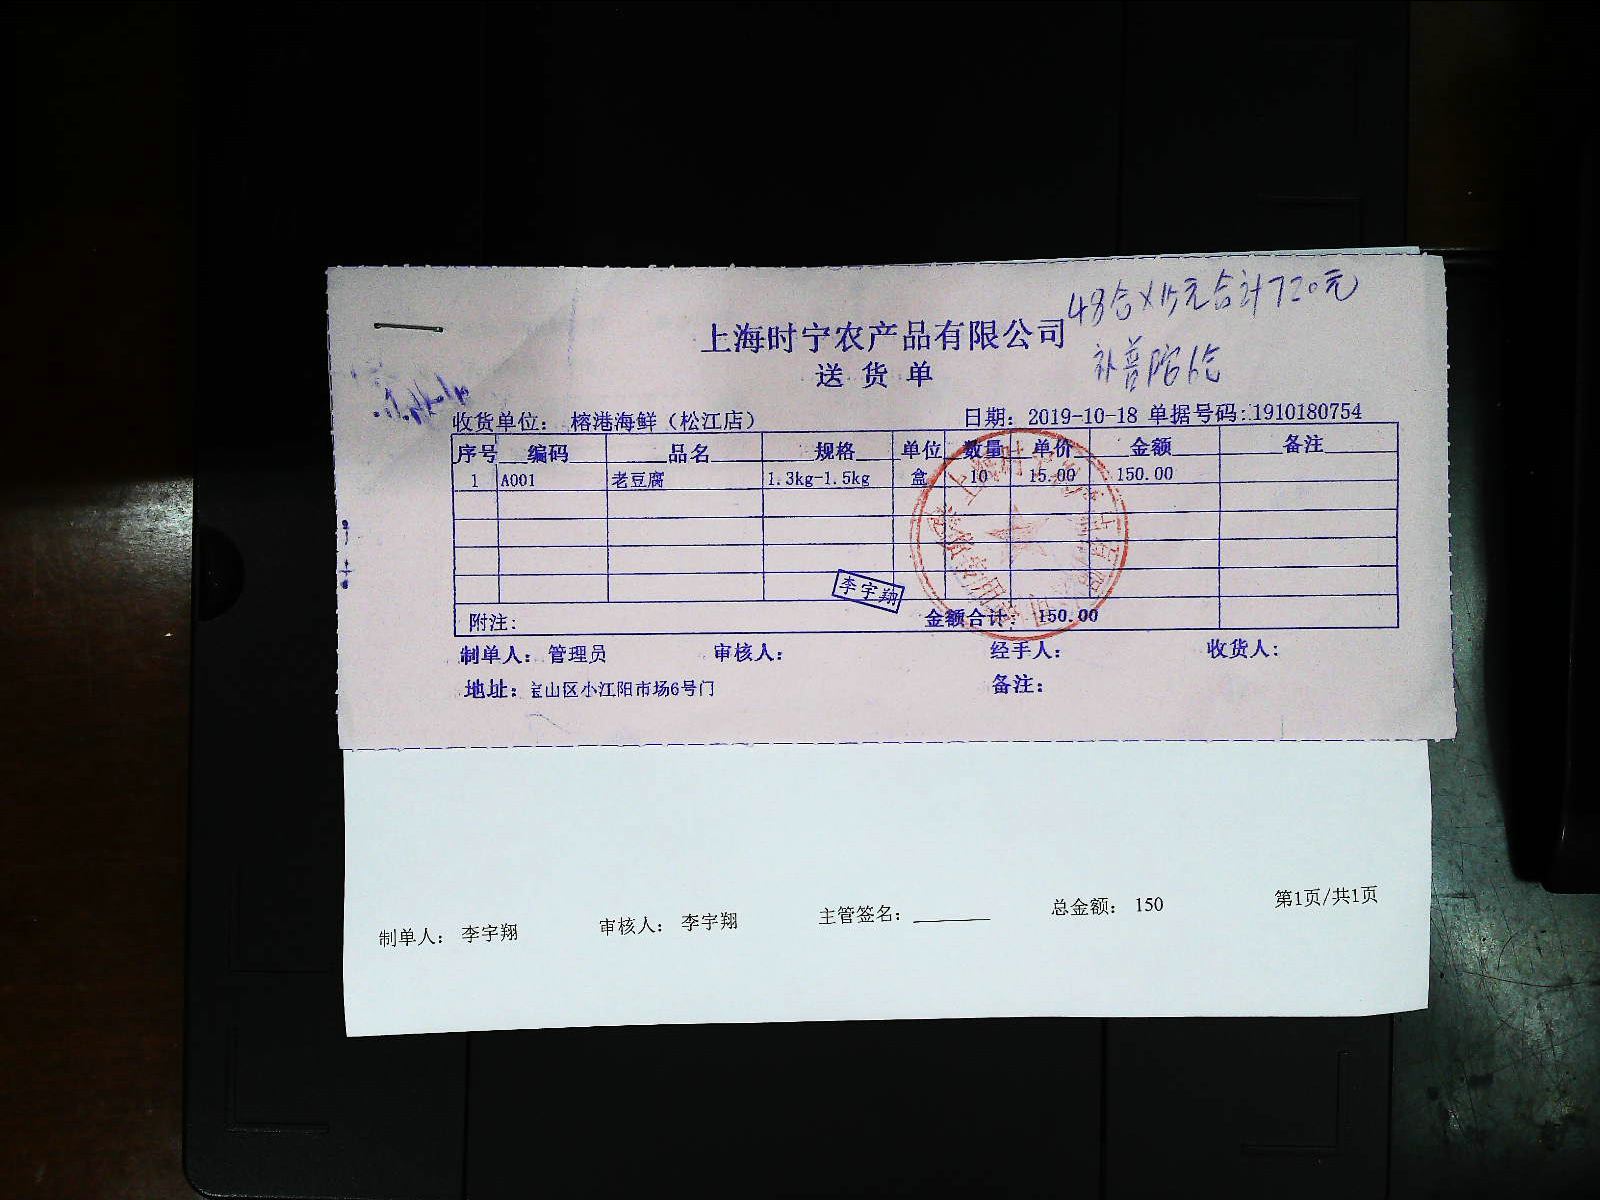 48合×15元合计720元
上海时宁农产品有限公司
补普陀
送货单
收货单位： 榕港海鲜（松江店） 日期： 2019-10-18 单据号码： 1910180754
序号 编码 品名 规格 单位 数量 单价 金额 备注
1 A001 老豆腐 1.3kg-1.5kg 盒 10 15.00 150.00
李宇翔
附注： 金额合计： 150.00
制单人： 管理员 审核人： 经手人： 收货人：
地址： 宝山区小江阳市场6号门 备注：
制单人： 李宇翔 审核人： 李宇翔 主管签名： 总金额： 150 第1页/共1页